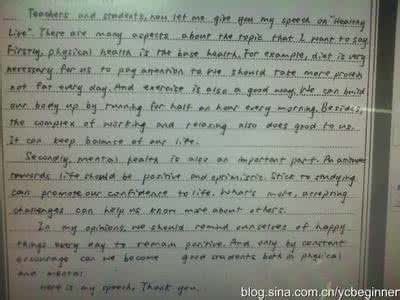 Teachers and students, now let me give you my speech on "Healthy
Life". There are many aspects about the topic that I want to say.
Firstly, physical health is the base health. For example, diet is very
necessary for us to pay attention to. We should take more protein
not fat every day. And exercise is also a good way. We can build
our body up by running for half an hour every morning. Besides,
the complex of working and relaxing also does good to us.
It can keep balance of our life.
Secondly, mental health is also an important part. An
towards life should be positive and optimistic. Stick to studying
can promote our confidence to life. What's more, accepting
challenges can help us know more about others.
In my opinions, we should remind ourselves of happy
things every day to remain positive. And, only by constant
encourage can we become good students both in physical
and mental.
Here is my speech, Thank you.
blog.sina.com.cn/ycbeginner